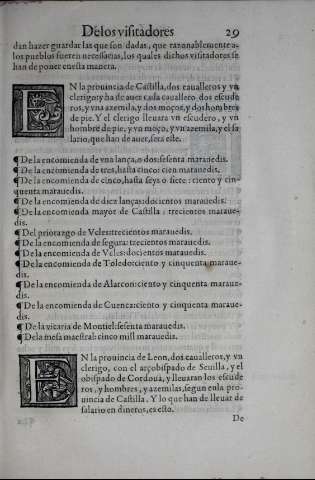 De los visitadores 29
dan hazer guardar las que son dadas, que razonablemente a-
los pueblos fueren necessarias, los quales dichos visitadores se
han de poner en esta manera.
EN la prouincia de Castilla, dos caualleros y vn
clerigo: y ha de auer cada cauallero dos escude
ros, y vna azemila, y dos moços, y dos hombres
de pie. Y el clerigo lleuara vn escudero, y vn
hombre de pie, y vn moço, y vn azemila, y el sa
lario, que han de auer, sera este.
¶ De la encomienda de vna lança, o dos: sesenta marauedis.
¶ De la encomienda de tres, hasta cinco: cien marauedis.
¶ De la encomienda de cinco, hasta seys o siete: ciento y cin-
quenta marauedis.
¶ De la encomienda de diez lanças: dozientos marauedis.
¶ De la encomienda mayor de Castilla: trecientos maraue-
dis.
¶ Del priorazgo de Veles: trecientos marauedis.
¶ De la encomienda de segura: trecientos marauedis.
¶ De la encomienda de Veles: dozientos marauedis.
¶ De la encomienda de Toledo: ciento y cinquenta maraue-
dis.
¶ De la encomienda de Alarcon: ciento y cinquenta maraue-
dis.
¶ De la encomienda de Cuenca: ciento y cinquenta maraue-
dis.
¶ De la vicaria de Montiel: sesenta marauedis.
¶ De la mesa maestral: cinco mill marauedis.
EN la prouincia de Leon, dos caualleros, y vn
clerigo, con el arçobispado de Seuilla, y el
obispado de Cordoua, y lleuaran los escude
ros, y hombres, y azemilas, segun en la pro-
uincia de Castilla. Y lo que han de lleuar de
salario en dineros, es esto.
De